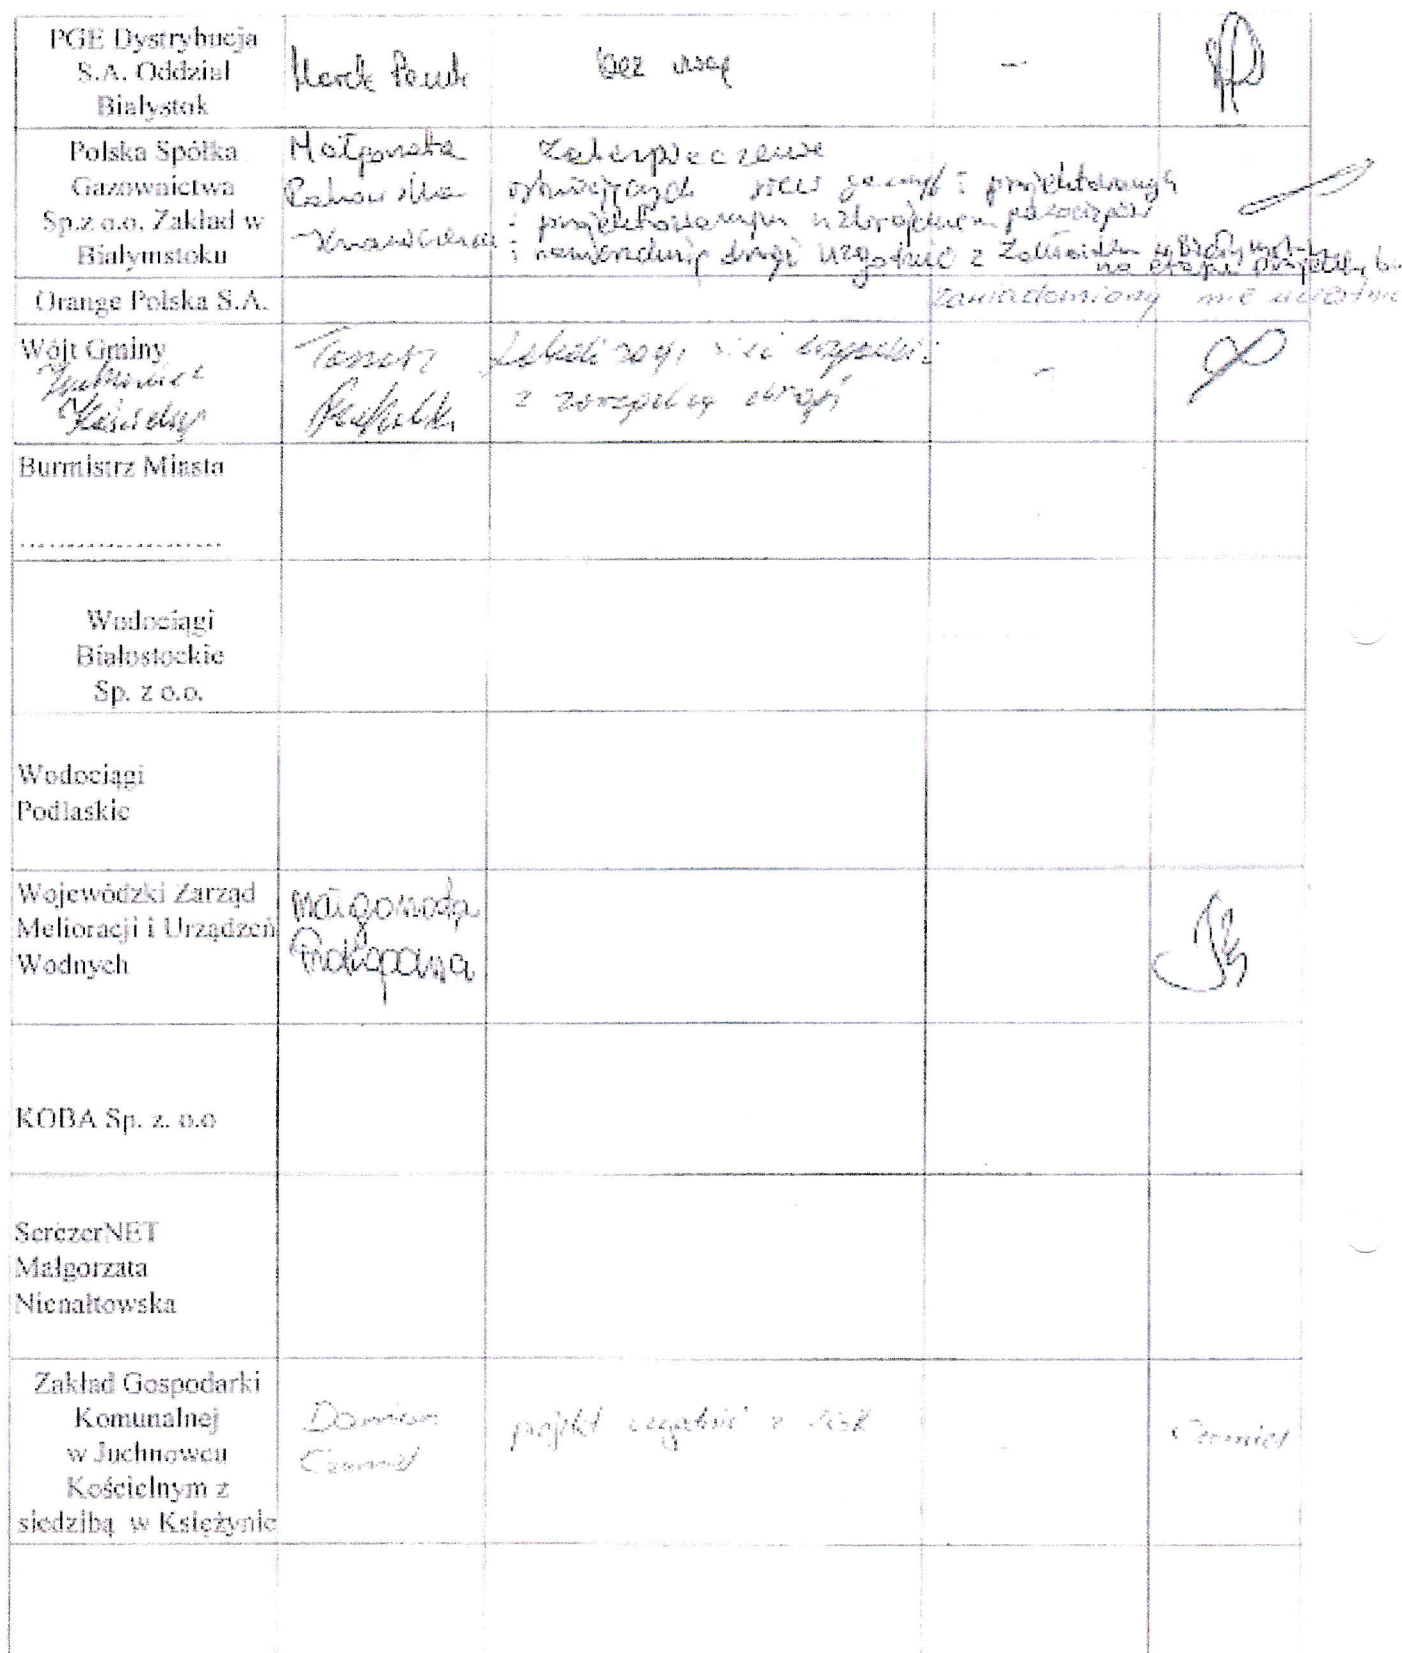 PGE Dystrybucja
S.A. Oddział
Białystok
Marek
bez uwag
-
Polska Spółka
Gazownictwa
Sp.z o.o. Zakład w
Białymstoku
Małgorzata
Zabezpieczenie
istniejących sieci i projektowanych
i projektowanym uzbrojeniem gazociągów
i nawierzchnią drogi uzgodnić z Zakładem w Białymstoku
na etapie
Orange Polska S.A.
zawiadomiony nie
Wójt Gminy
Juchnowiec
Kościelny
Tomasz
z
-
Burmistrz Miasta
....................
Wodociągi
Białostockie
Sp. z o.o.
Wodociągi
Podlaskie
Wojewódzki Zarząd
Melioracji i Urządzeń
Wodnych
Małgorzata
Prokopowa
KOBA Sp. z. o.o
SerczerNET
Małgorzata
Nienałtowska
Zakład Gospodarki
Komunalnej
w Juchnowcu
Kościelnym z
siedzibą w Księżynie
Damian
Czemiel
projekt uzgodnić z
-
Czemiel